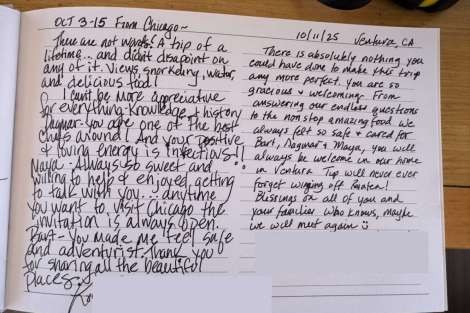 OCT 3-15 From Chicago~
There are not words! A trip of a
lifetime... and didnt disapoint on
any of it. Views, snorkeling, water,
and delicious food!
I can't be more appreciative
for everything. Knowledge & history
Dagmar-You are one of the best
chefs around! And your positive
& loving energy is infectious!!
Maya- Always so sweet and
willing to help & enjoyed getting
to talk with you... anytime
you want to visit Chicago the
invitation is always open.
Bart-You made me feel safe
and adventurist. Thank you
for sharing all the beautiful
places.
10/11/25 Ventura, CA
There is absolutely nothing you
could have done to make this trip
any more perfect. You are so
gracious & welcoming. From
answering our endless questions
to the nonstop amazing food we
always felt so safe & cared for
Bart, Dagmar & Maya, you will
always be welcome in our home
in Ventura. Tup will never ever
forget winging off
Blessings on all of you and
your families. Who knows, maybe
we will meet again